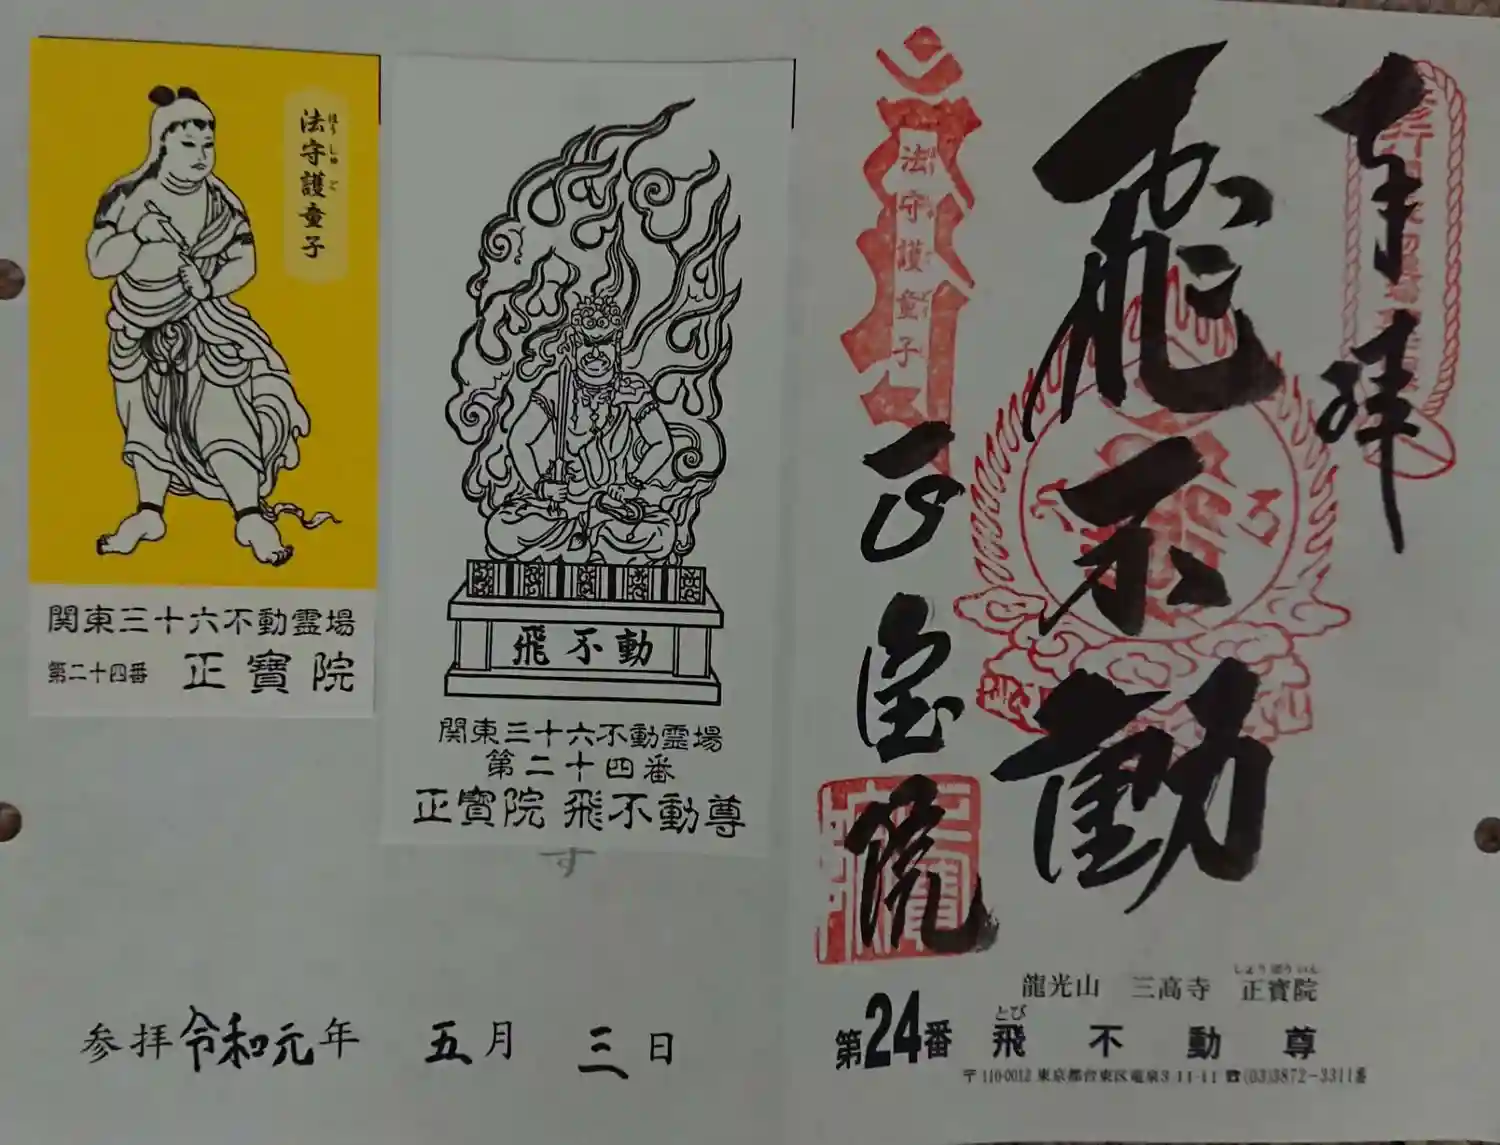 奉拝
飛不動
法守護童子
正宝院
龍光山 三高寺 正寶院
しょうぼういん
第24番 飛不動尊
とび
〒110-0012 東京都台東区竜泉3-11-11 ☎(03)3872-3311番
法守護童子
ほうしゅご
関東三十六不動霊場
第二十四番 正寶院
飛不動
関東三十六不動霊場
第二十四番
正寶院 飛不動尊
す
参拝 令和元年 五月 三日